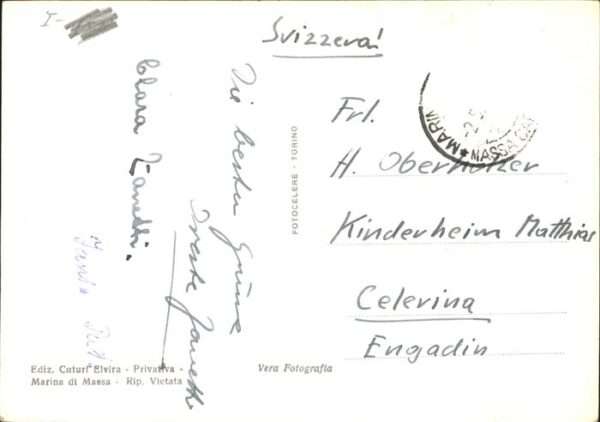 I-
Svizzera!
Die besten Grüsse
Oreste Zanetti
Clara Zanetti.
Frl.
H. Oberholzer
Kinderheim Matthias
Celerina
Engadin
MARIN
MASSA
FOTOCELERE - TORINO
Ediz. Cuturi Elvira - Privativa -
Marina di Massa - Rip. Vietata
Vera Fotografia